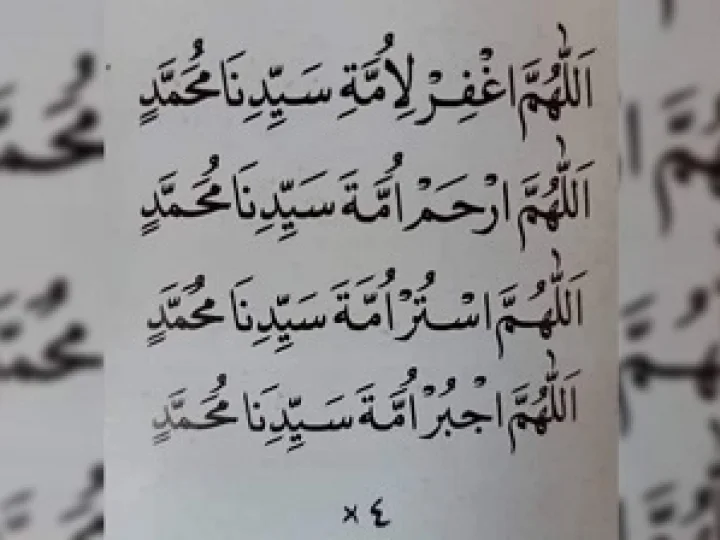 اَللّٰهُمَّ اغْفِرْ لِاُمَّةِ سَيِّدِنَا مُحَمَّدٍ
اَللّٰهُمَّ ارْحَمْ اُمَّةَ سَيِّدِنَا مُحَمَّدٍ
اَللّٰهُمَّ اسْتُرْ اُمَّةَ سَيِّدِنَا مُحَمَّدٍ
اَللّٰهُمَّ اجْبُرْ اُمَّةَ سَيِّدِنَا مُحَمَّدٍ
٤ ×